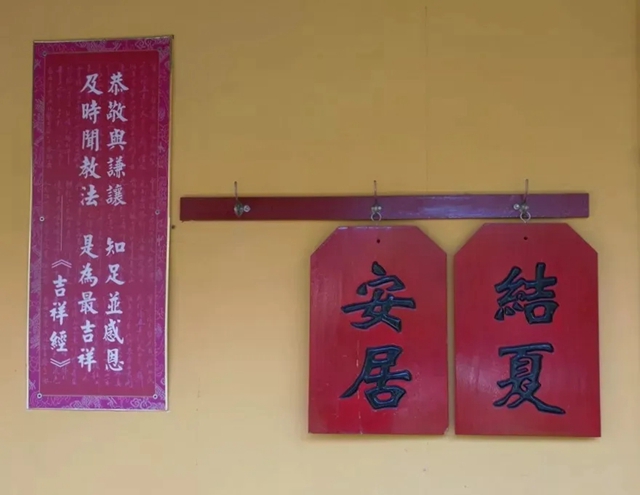 結夏
安居
恭敬與謙讓 知足並感恩
及時聞教法 是為最吉祥
《吉祥經》